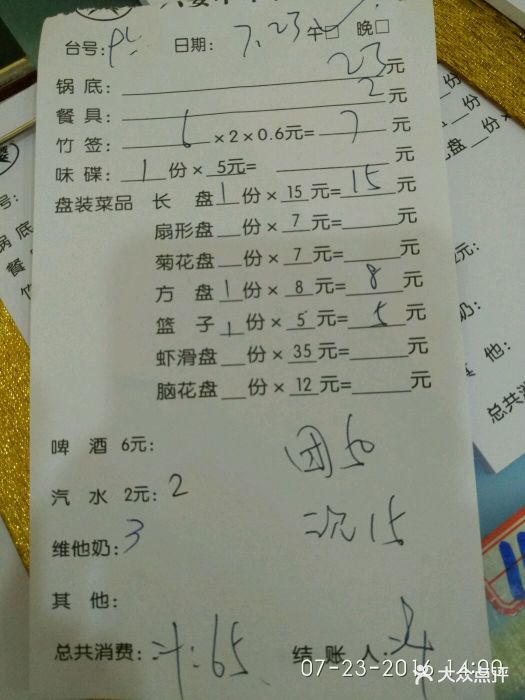 台号: 日期: 7.23 午□ 晚□
锅底: 23 元
餐具: 2 元
竹签: 6 ×2×0.6元= 7 元
味碟: 1 份×5元= 元
盘装菜品 长 盘 1 份×15元= 15 元
扇形盘 份×7元= 元
菊花盘 份×7元= 元
方 盘 1 份×8元= 8 元
篮 子 1 份×5元= 5 元
虾滑盘 份×35元= 元
脑花盘 份×12元= 元
啤 酒 6元:
团50
汽 水 2元: 2
维他奶: 3
15
其 他:
总共消费: 65 结 账 人:
07-23-2016 14:00
大众点评
号:
锅底
餐
竹
元:
奶:
其 他:
总共消